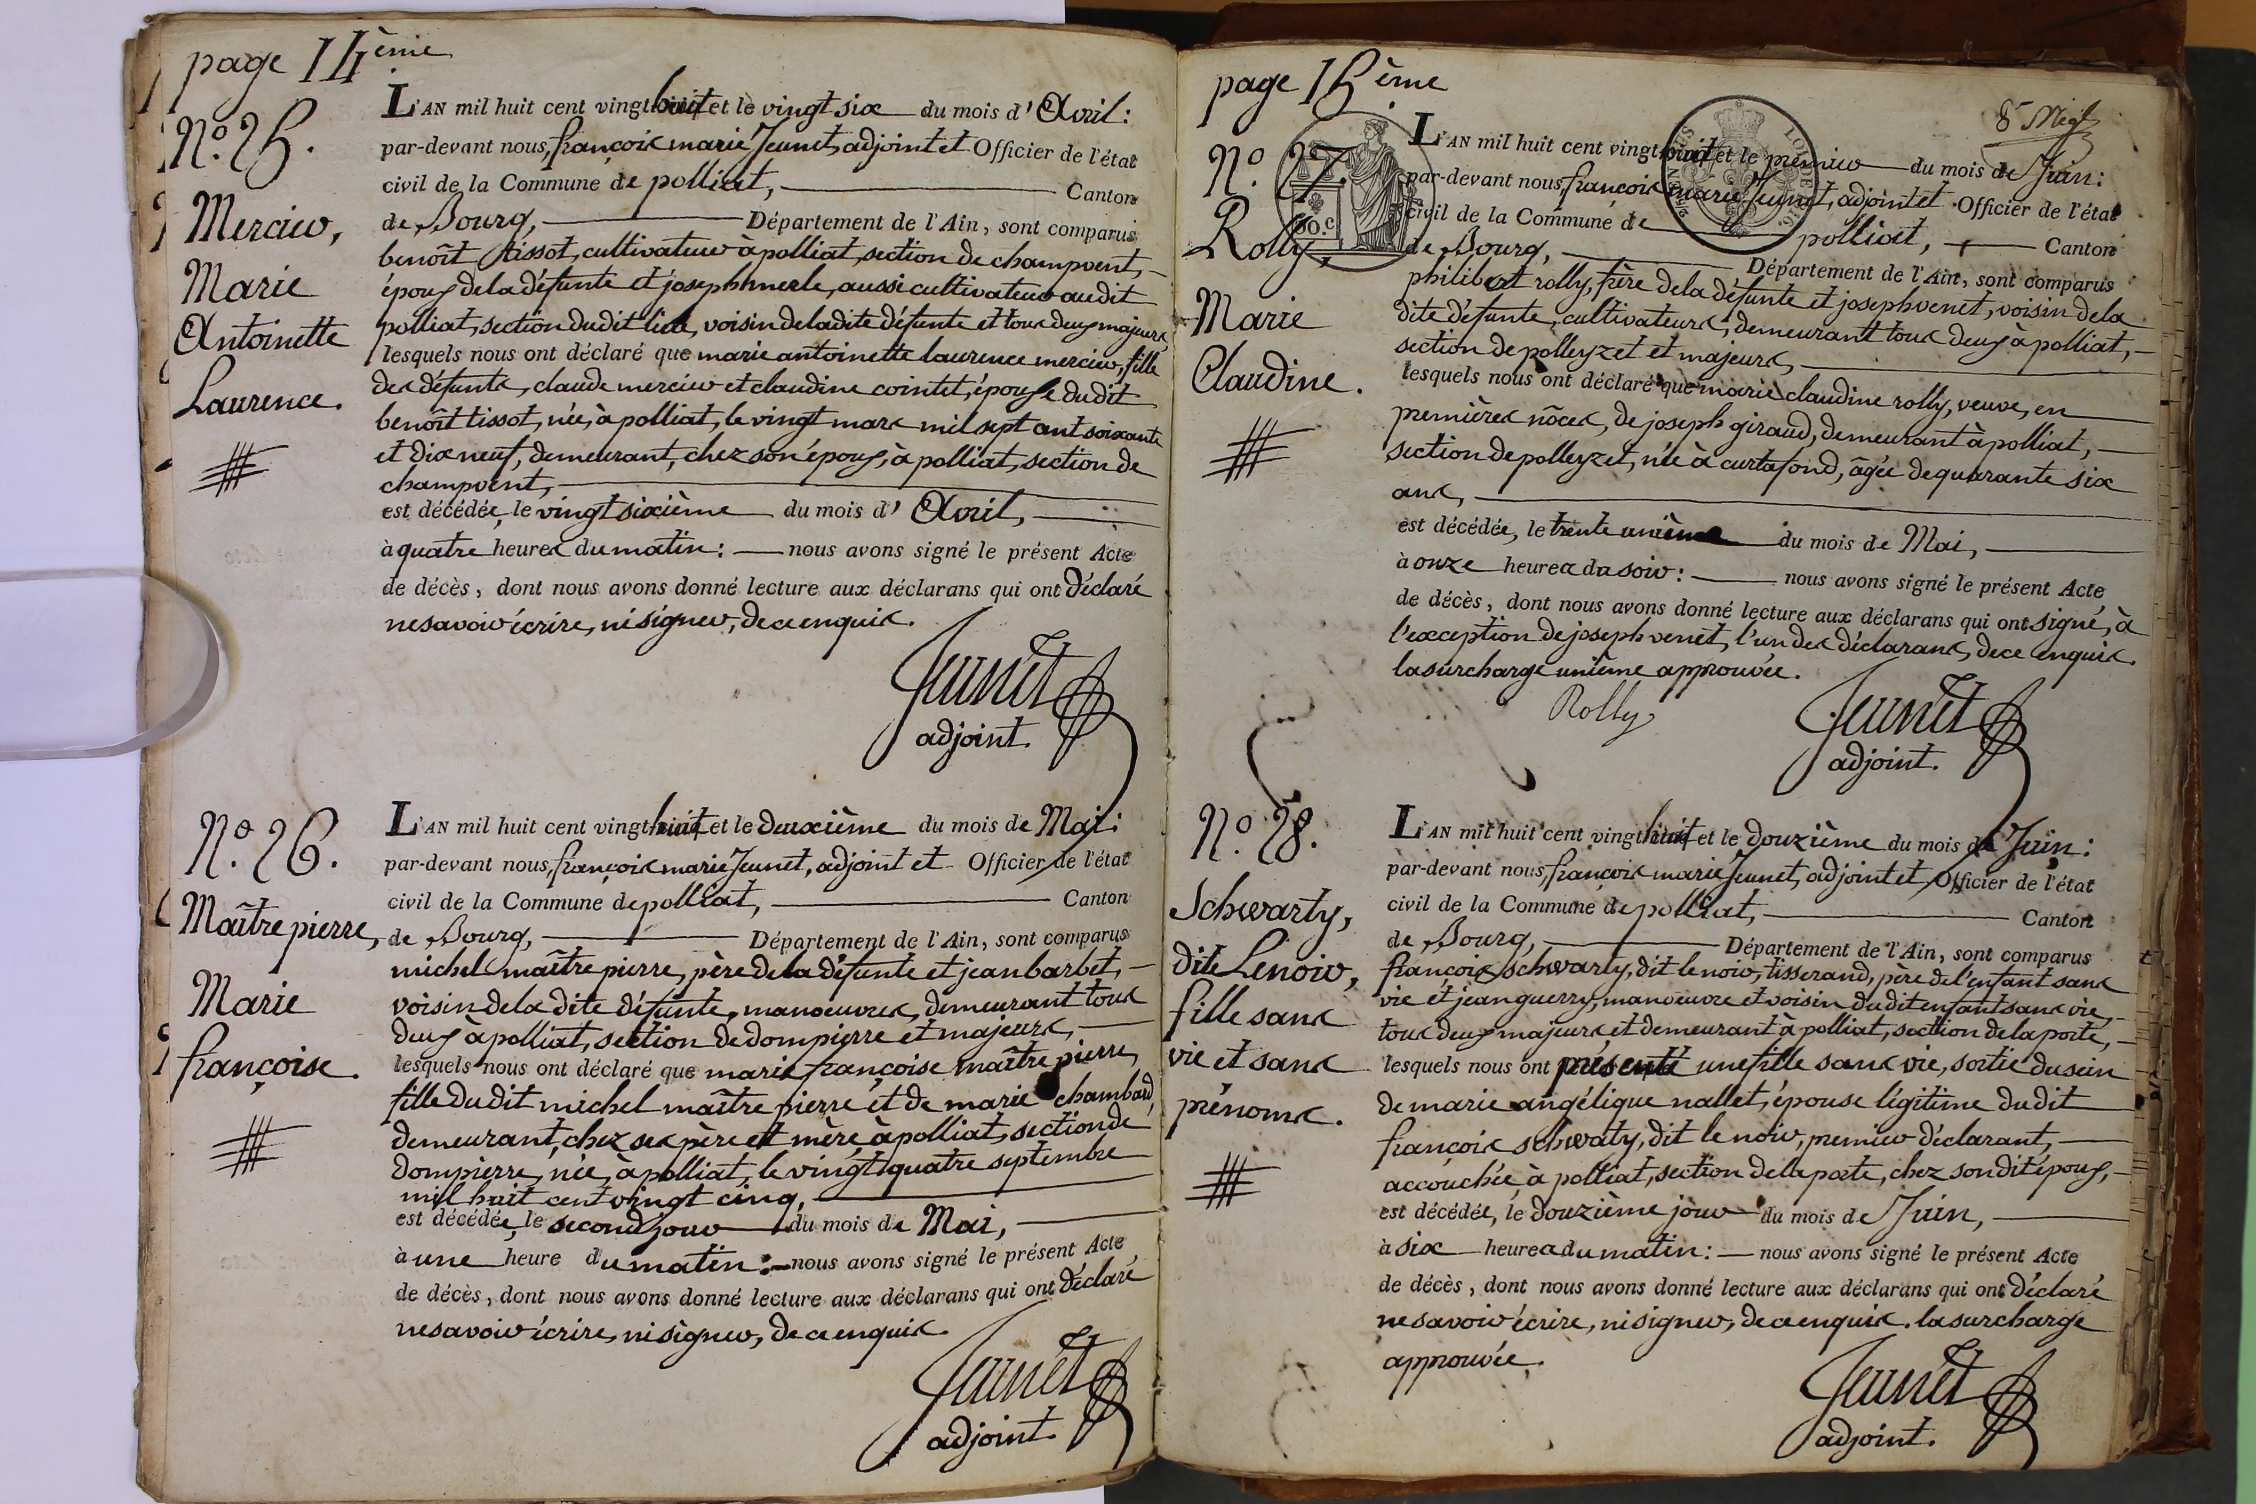 page 14ème
N.º 25.
Mercier,
Marie
Antoinette
Laurence.
L'AN mil huit cent vingt huit et le vingt six du mois d' Avril :
par-devant nous, françois marie Jeunet, adjoint et Officier de l'état
civil de la Commune de polliat, Canton
de Bourg, Département de l'Ain, sont comparus
benoît tissot, cultivateur à polliat, section de champvent,
époux de la défunte et joseph merle, aussi cultivateur audit
polliat, section dudit lieu, voisin de ladite défunte et tous deux majeurs,
lesquels nous ont déclaré que marie antoinette laurence mercier, fille
des défunts, claude mercier et claudine cointet, épouse dudit
benoît tissot, née, à polliat, le vingt mars mil sept cent soixante
et dix neuf, demeurant, chez son époux, à polliat, section de
champvent,
est décédée, le vingt sixième du mois d' Avril,
à quatre heures du matin : nous avons signé le présent Acte
de décès, dont nous avons donné lecture aux déclarans qui ont déclaré
ne savoir écrire, ni signer, de ce enquis.
Jeunet
adjoint.
N.º 26.
Maître pierre,
Marie
françoise.
L'AN mil huit cent vingt huit et le deuxième du mois de Mai :
par-devant nous, françois marie Jeunet, adjoint et Officier de l'état
civil de la Commune de polliat, Canton
de Bourg, Département de l'Ain, sont comparus
michel maître pierre, père de la défunte et jean barbet,
voisin de la dite défunte, manoeuvres, demeurant tous
deux à polliat, section de dompierre et majeurs,
lesquels nous ont déclaré que marie françoise maître pierre,
fille dudit michel maître pierre et de marie chambard,
demeurant, chez ses père et mère, à polliat, section de
dompierre, née, à polliat, le vingt quatre septembre
mil huit cent vingt cinq,
est décédée, le second jour du mois de Mai,
à une heure du matin : nous avons signé le présent Acte
de décès, dont nous avons donné lecture aux déclarans qui ont déclaré
ne savoir écrire, ni signer, de ce enquis.
Jeunet
adjoint.
page 15ème
N.º 27
Rolly,
Marie
Claudine.
L'AN mil huit cent vingt huit et le premier du mois de Juin :
par-devant nous, françois marie Jeunet, adjoint et Officier de l'état
civil de la Commune de polliat, Canton
de Bourg, Département de l'Ain, sont comparus
philibert rolly, frère de la défunte et joseph venet, voisin de la
dite défunte, cultivateurs, demeurant tous deux à polliat,
section de polleyzet et majeurs,
lesquels nous ont déclaré que marie claudine rolly, veuve, en
premières nôces, de joseph giraud, demeurant à polliat,
section de polleyzet, née à curtafond, âgée de quarante six
ans,
est décédée, le trente unième du mois de Mai,
à onze heures du soir : nous avons signé le présent Acte
de décès, dont nous avons donné lecture aux déclarans qui ont signé, à
l'exception de joseph venet, l'un des déclarans, de ce enquis.
la surcharge unième approuvée.
Rolly
Jeunet
adjoint.
N.º 28.
Schwarty,
dite Lenoir,
fille sans
vie et sans
prénoms.
L'AN mil huit cent vingt huit et le douzième du mois de Juin :
par-devant nous, françois marie Jeunet, adjoint et Officier de l'état
civil de la Commune de polliat, Canton
de Bourg, Département de l'Ain, sont comparus
françois schwarty, dit lenoir, tisserand, père de l'enfant sans
vie et jean guerry, manoeuvre et voisin dudit enfant sans vie,
tous deux majeurs et demeurant à polliat, section de la porte,
lesquels nous ont présenté une fille sans vie, sortie du sein
de marie angélique nallet, épouse légitime dudit
françois schwaty, dit le noir, premier déclarant,
accouchée, à polliat, section de la porte, chez son dit époux,
est décédée, le douzième jour du mois de Juin,
à six heures du matin : nous avons signé le présent Acte
de décès, dont nous avons donné lecture aux déclarans qui ont déclaré
ne savoir écrire, ni signer, de ce enquis. la surcharge
approuvée.
Jeunet
adjoint.